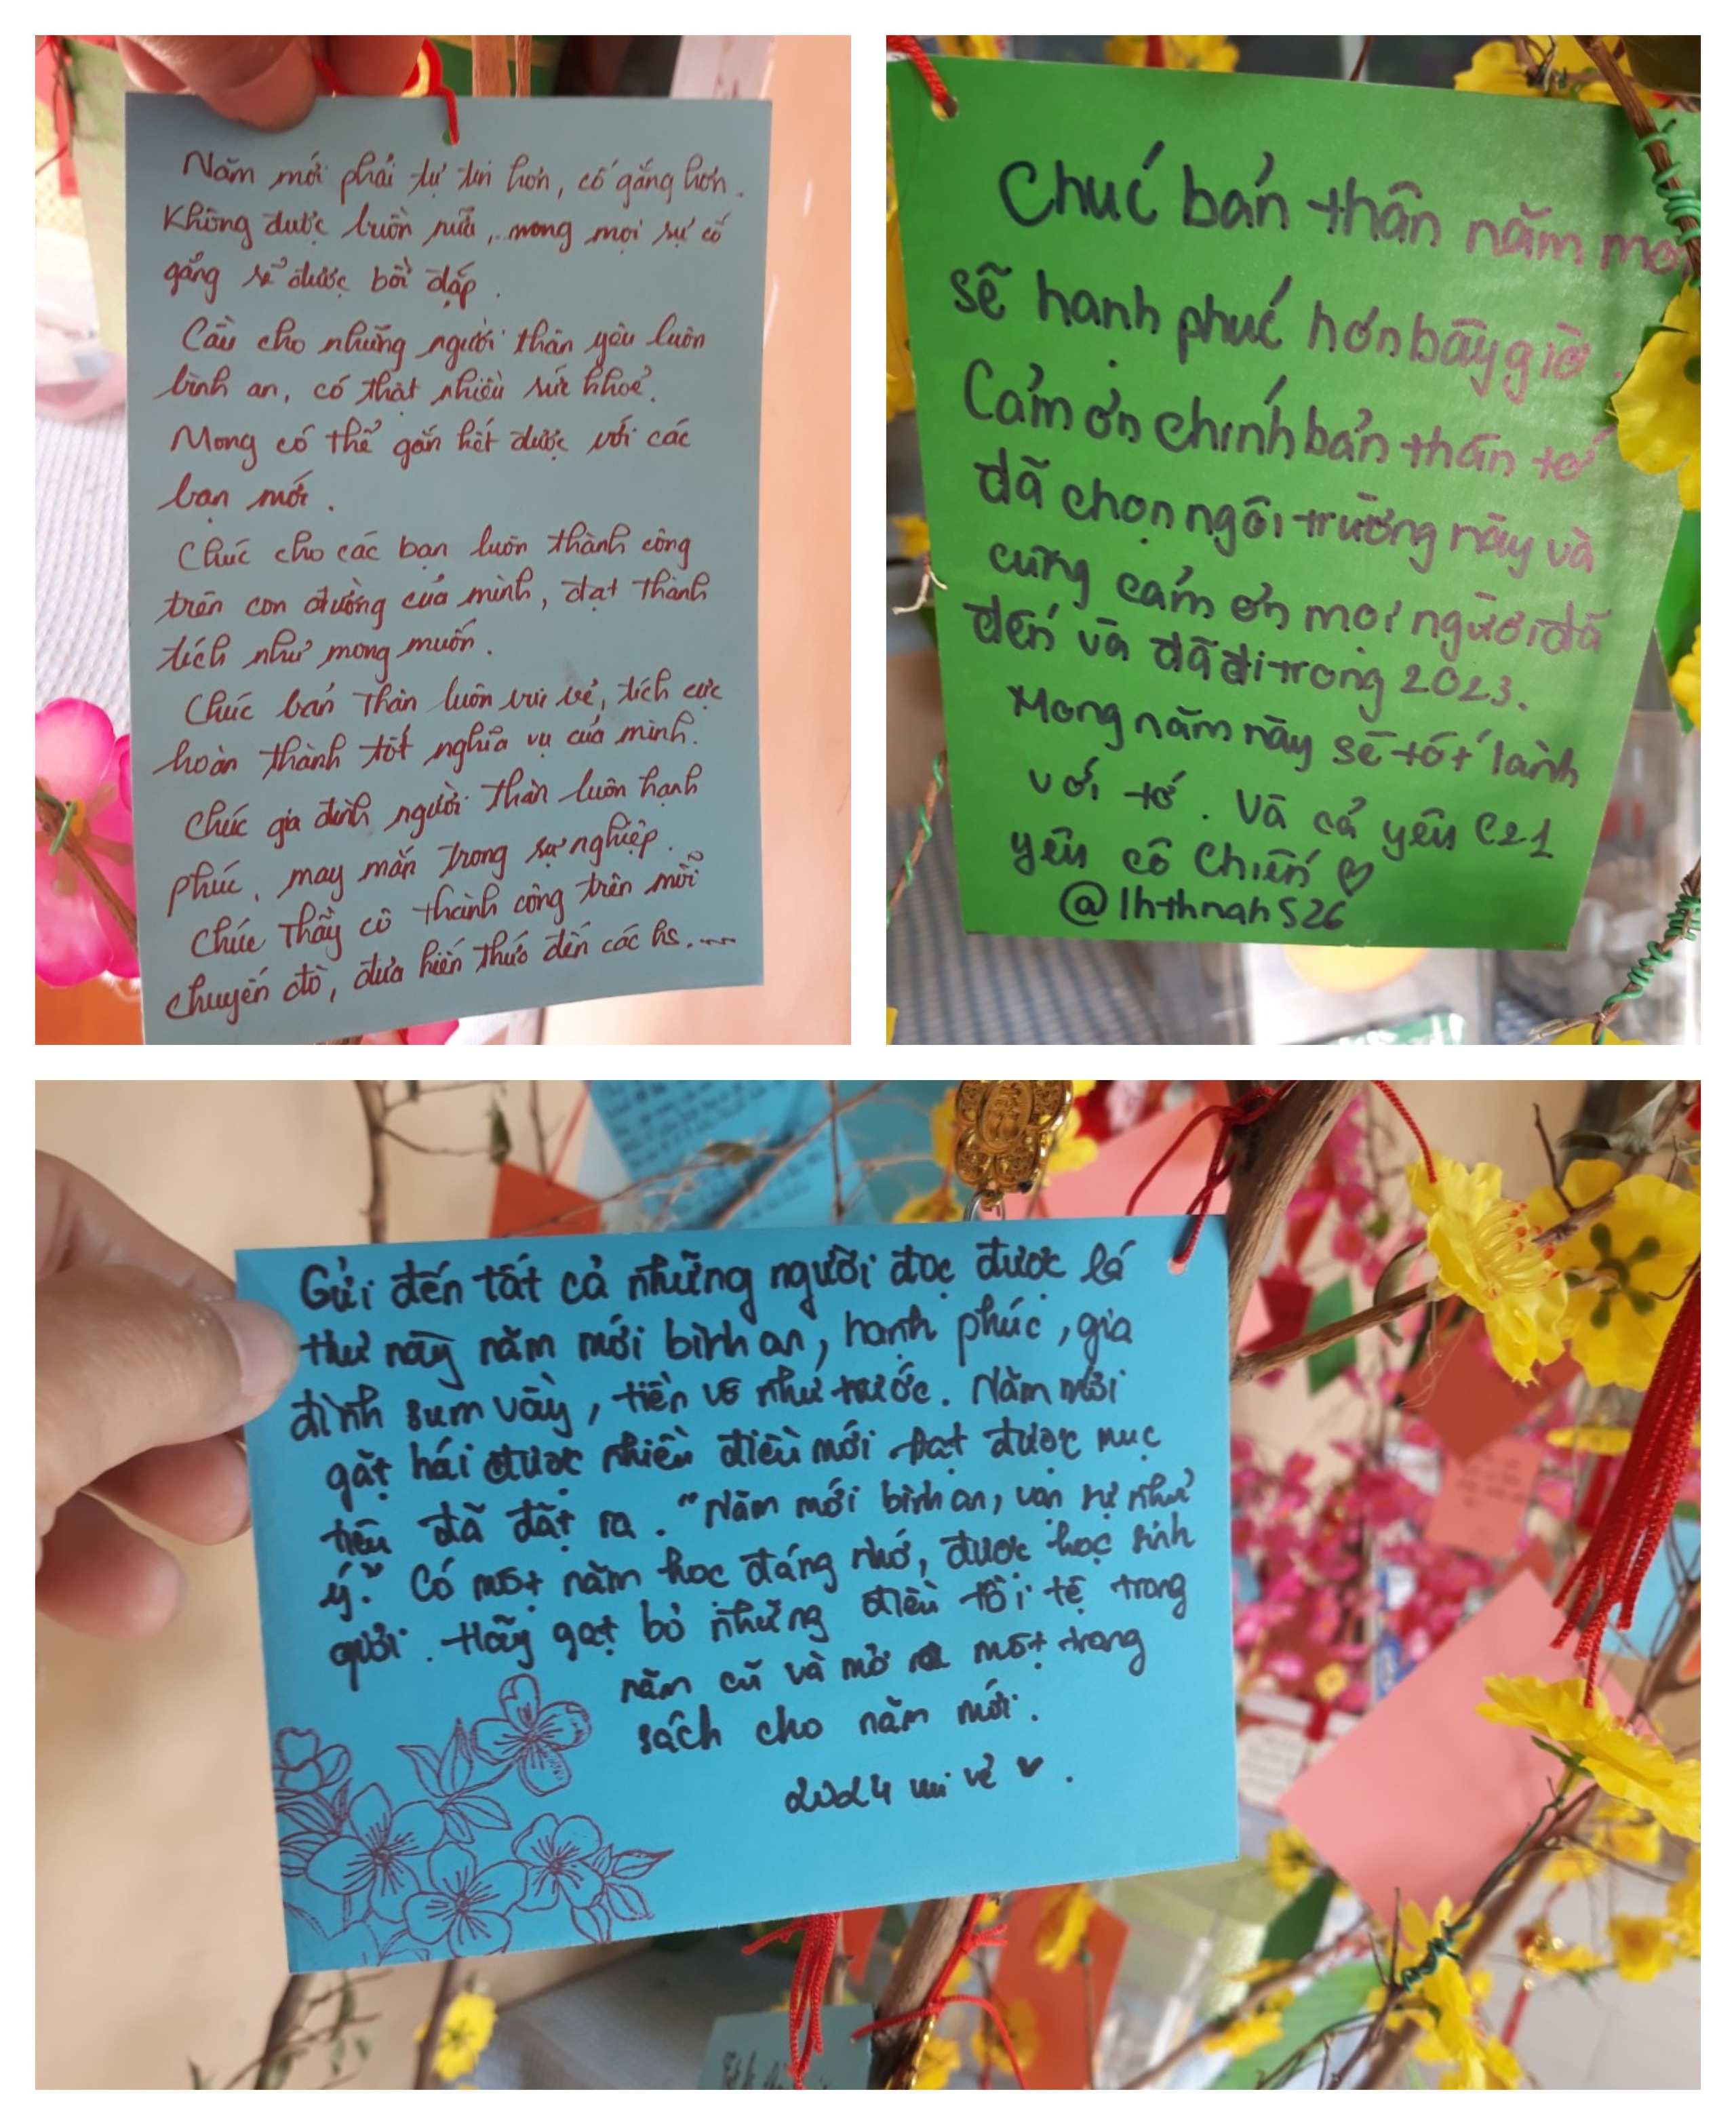 Năm mới phải tự tin hơn, cố gắng hơn.
Không được buồn nữa, mong mọi sự cố
gắng sẽ được bồi đắp.
Cầu cho những người thân yêu luôn
bình an, có thật nhiều sức khoẻ.
Mong có thể gắn kết được với các
bạn mới.
Chúc cho các bạn luôn thành công
trên con đường của mình, đạt thành
tích như mong muốn.
Chúc bản thân luôn vui vẻ, tích cực
hoàn thành tốt nghĩa vụ của mình.
Chúc gia đình người thân luôn hạnh
phúc, may mắn trong sự nghiệp.
Chúc Thầy cô thành công trên mỗi
chuyến đò, đưa kiến thức đến các hs.....
Chúc bản thân năm mới
sẽ hạnh phúc hơn bây giờ.
Cảm ơn chính bản thân tớ
đã chọn ngôi trường này và
cũng cảm ơn mọi người đã
đến và đã đi trong 2023.
Mong năm này sẽ tốt lành
với tớ. Và cả yêu C21
yêu cô Chiến ♡
@lhthnahS26
Gửi đến tất cả những người đọc được lá
thư này năm mới bình an, hạnh phúc, gia
đình sum vầy, tiền vô như nước. Năm mới
gặt hái được nhiều điều mới đạt được mục
tiêu đã đặt ra. "Năm mới bình an, vạn sự như
ý". Có một năm học đáng nhớ, được học sinh
giỏi. Hãy gạt bỏ những điều tồi tệ trong
năm cũ và mở ra một trang
sách cho năm mới.
2024 vui vẻ ♥.